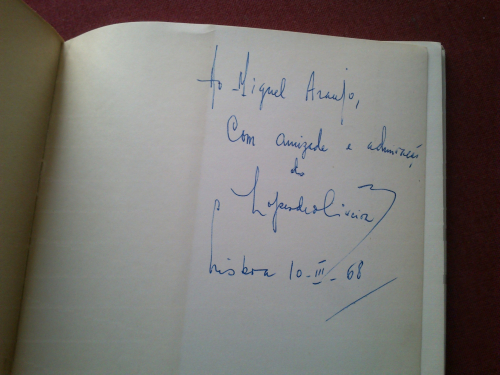 Ao Miguel Araujo,
Com amizade e admiração
do
Lopes de Oliveira
Lisboa 10-III-68